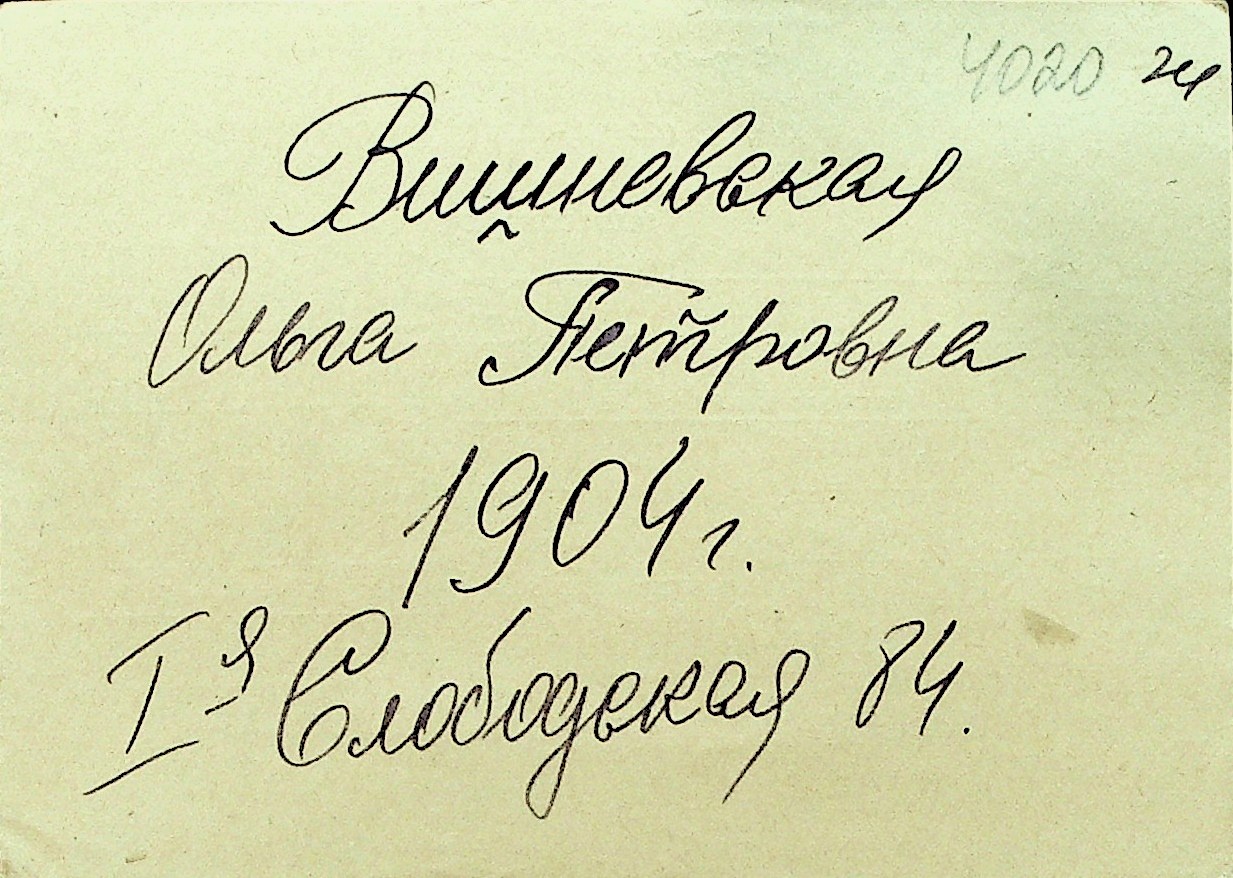 4020
Вишневская
Ольга Петровна
1904 г.
I я Слободская 84.